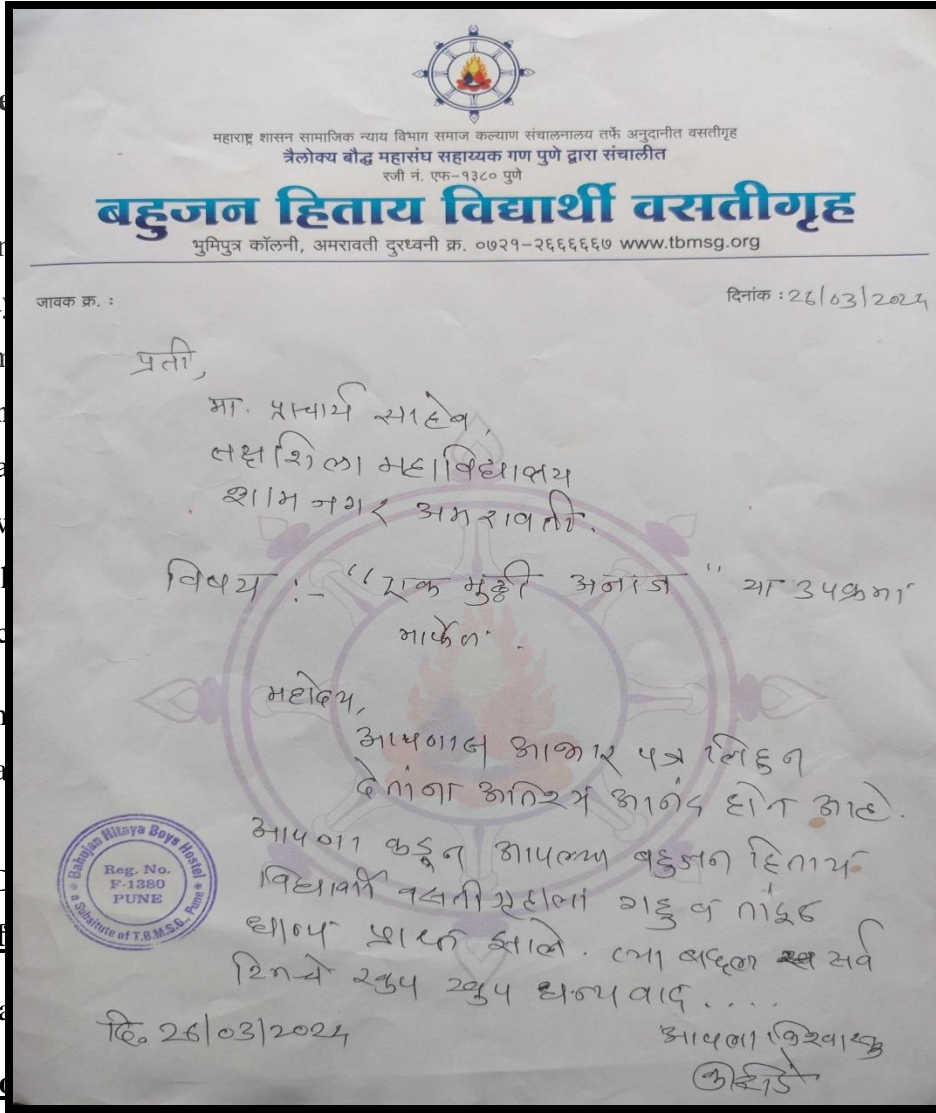 महाराष्ट्र शासन सामाजिक न्याय विभाग समाज कल्याण संचालनालय तर्फे अनुदानीत वसतीगृह
त्रैलोक्य बौद्ध महासंघ सहाय्यक गण पुणे द्वारा संचालीत
रजी नं. एफ-१३८० पुणे
बहुजन हिताय विद्यार्थी वसतीगृह
भुमिपुत्र कॉलनी, अमरावती दुरध्वनी क्र. ०७२१-२६६६६६७ www.tbmsg.org
जावक क्र. :
दिनांक : 26/03/2024
प्रती,
मा. प्राचार्य साहेब,
तक्षशिला महाविद्यालय
शाम नगर अमरावती.
विषय :- "एक मुठ्ठी अनाज" या उपक्रमां
मार्फत.
महोदय,
आपणास आभार पत्र लिहुन
देतांना अतिशय आनंद होत आहे.
आपणा कडून आपल्या बहुजन हिताय
विद्यार्थी वसतीगृहाला गहु व तांदुळ
धान्य प्राप्त झाले. त्या बद्दल सर्व
टिमचे खुप खुप धन्यवाद....
दि. 26/03/2024
आपला विश्वासू
Bahujan Hitaya Boys Hostel
Reg. No.
F-1380
PUNE
a Subsitute of T.B.M.S.G., Pune